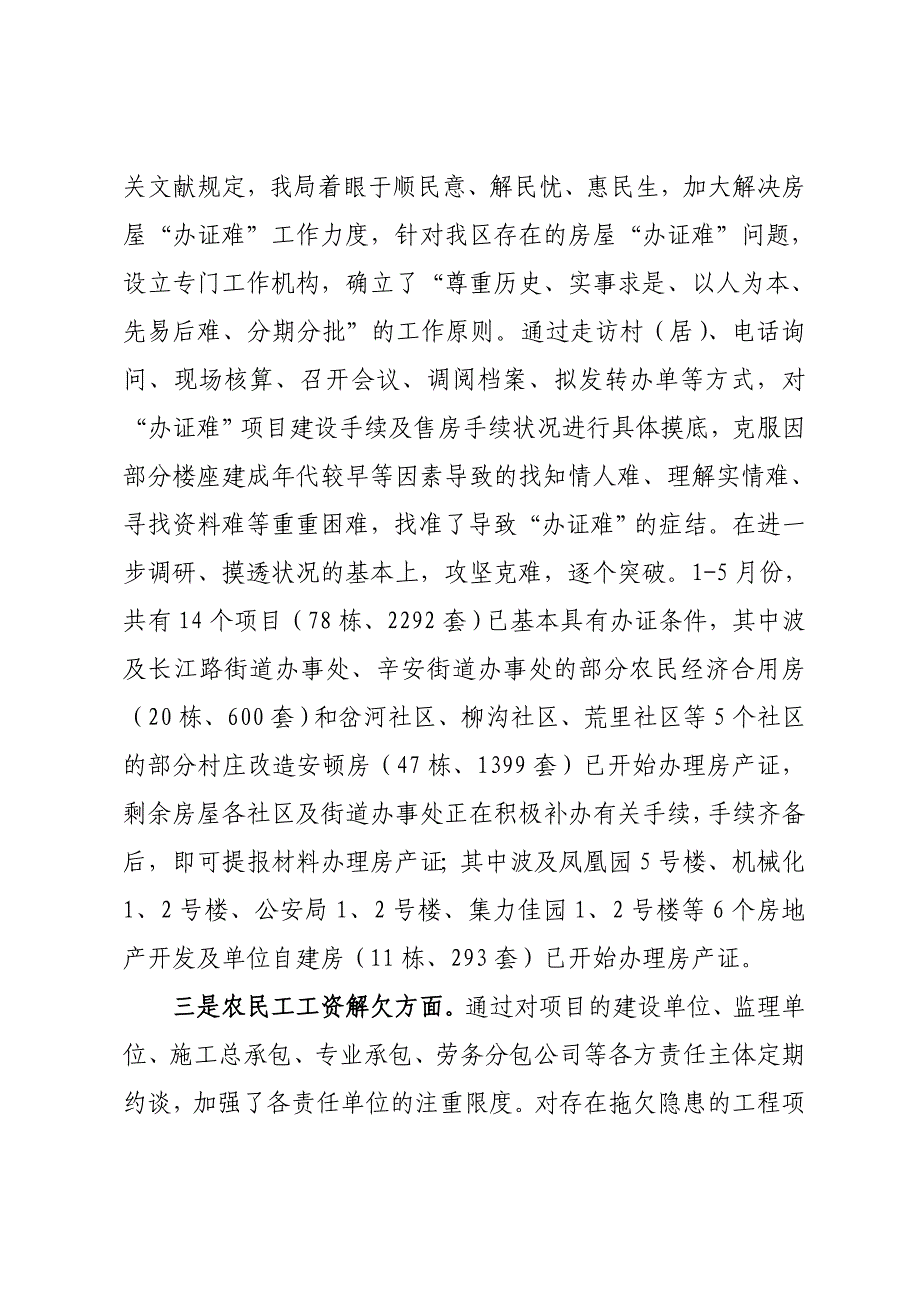 关文献规定，我局着眼于顺民意、解民忧、惠民生，加大解决房
屋“办证难”工作力度，针对我区存在的房屋“办证难”问题，
设立专门工作机构，确立了“尊重历史、实事求是、以人为本、
先易后难、分期分批”的工作原则。通过走访村（居）、电话询
问、现场核算、召开会议、调阅档案、拟发转办单等方式，对
“办证难”项目建设手续及售房手续状况进行具体摸底，克服因
部分楼座建成年代较早等因素导致的找知情人难、理解实情难、
寻找资料难等重重困难，找准了导致“办证难”的症结。在进一
步调研、摸透状况的基本上，攻坚克难，逐个突破。1-5 月份，
共有 14 个项目（78 栋、2292 套）已基本具有办证条件，其中波
及长江路街道办事处、辛安街道办事处的部分农民经济合用房
（20 栋、600 套）和岔河社区、柳沟社区、荒里社区等 5 个社区
的部分村庄改造安顿房（47 栋、1399 套）已开始办理房产证，
剩余房屋各社区及街道办事处正在积极补办有关手续，手续齐备
后，即可提报材料办理房产证；其中波及凤凰园 5 号楼、机械化
1、2 号楼、公安局 1、2 号楼、集力佳园 1、2 号楼等 6 个房地
产开发及单位自建房（11 栋、293 套）已开始办理房产证。
三是农民工工资解欠方面。通过对项目的建设单位、监理单
位、施工总承包、专业承包、劳务分包公司等各方责任主体定期
约谈，加强了各责任单位的注重限度。对存在拖欠隐患的工程项